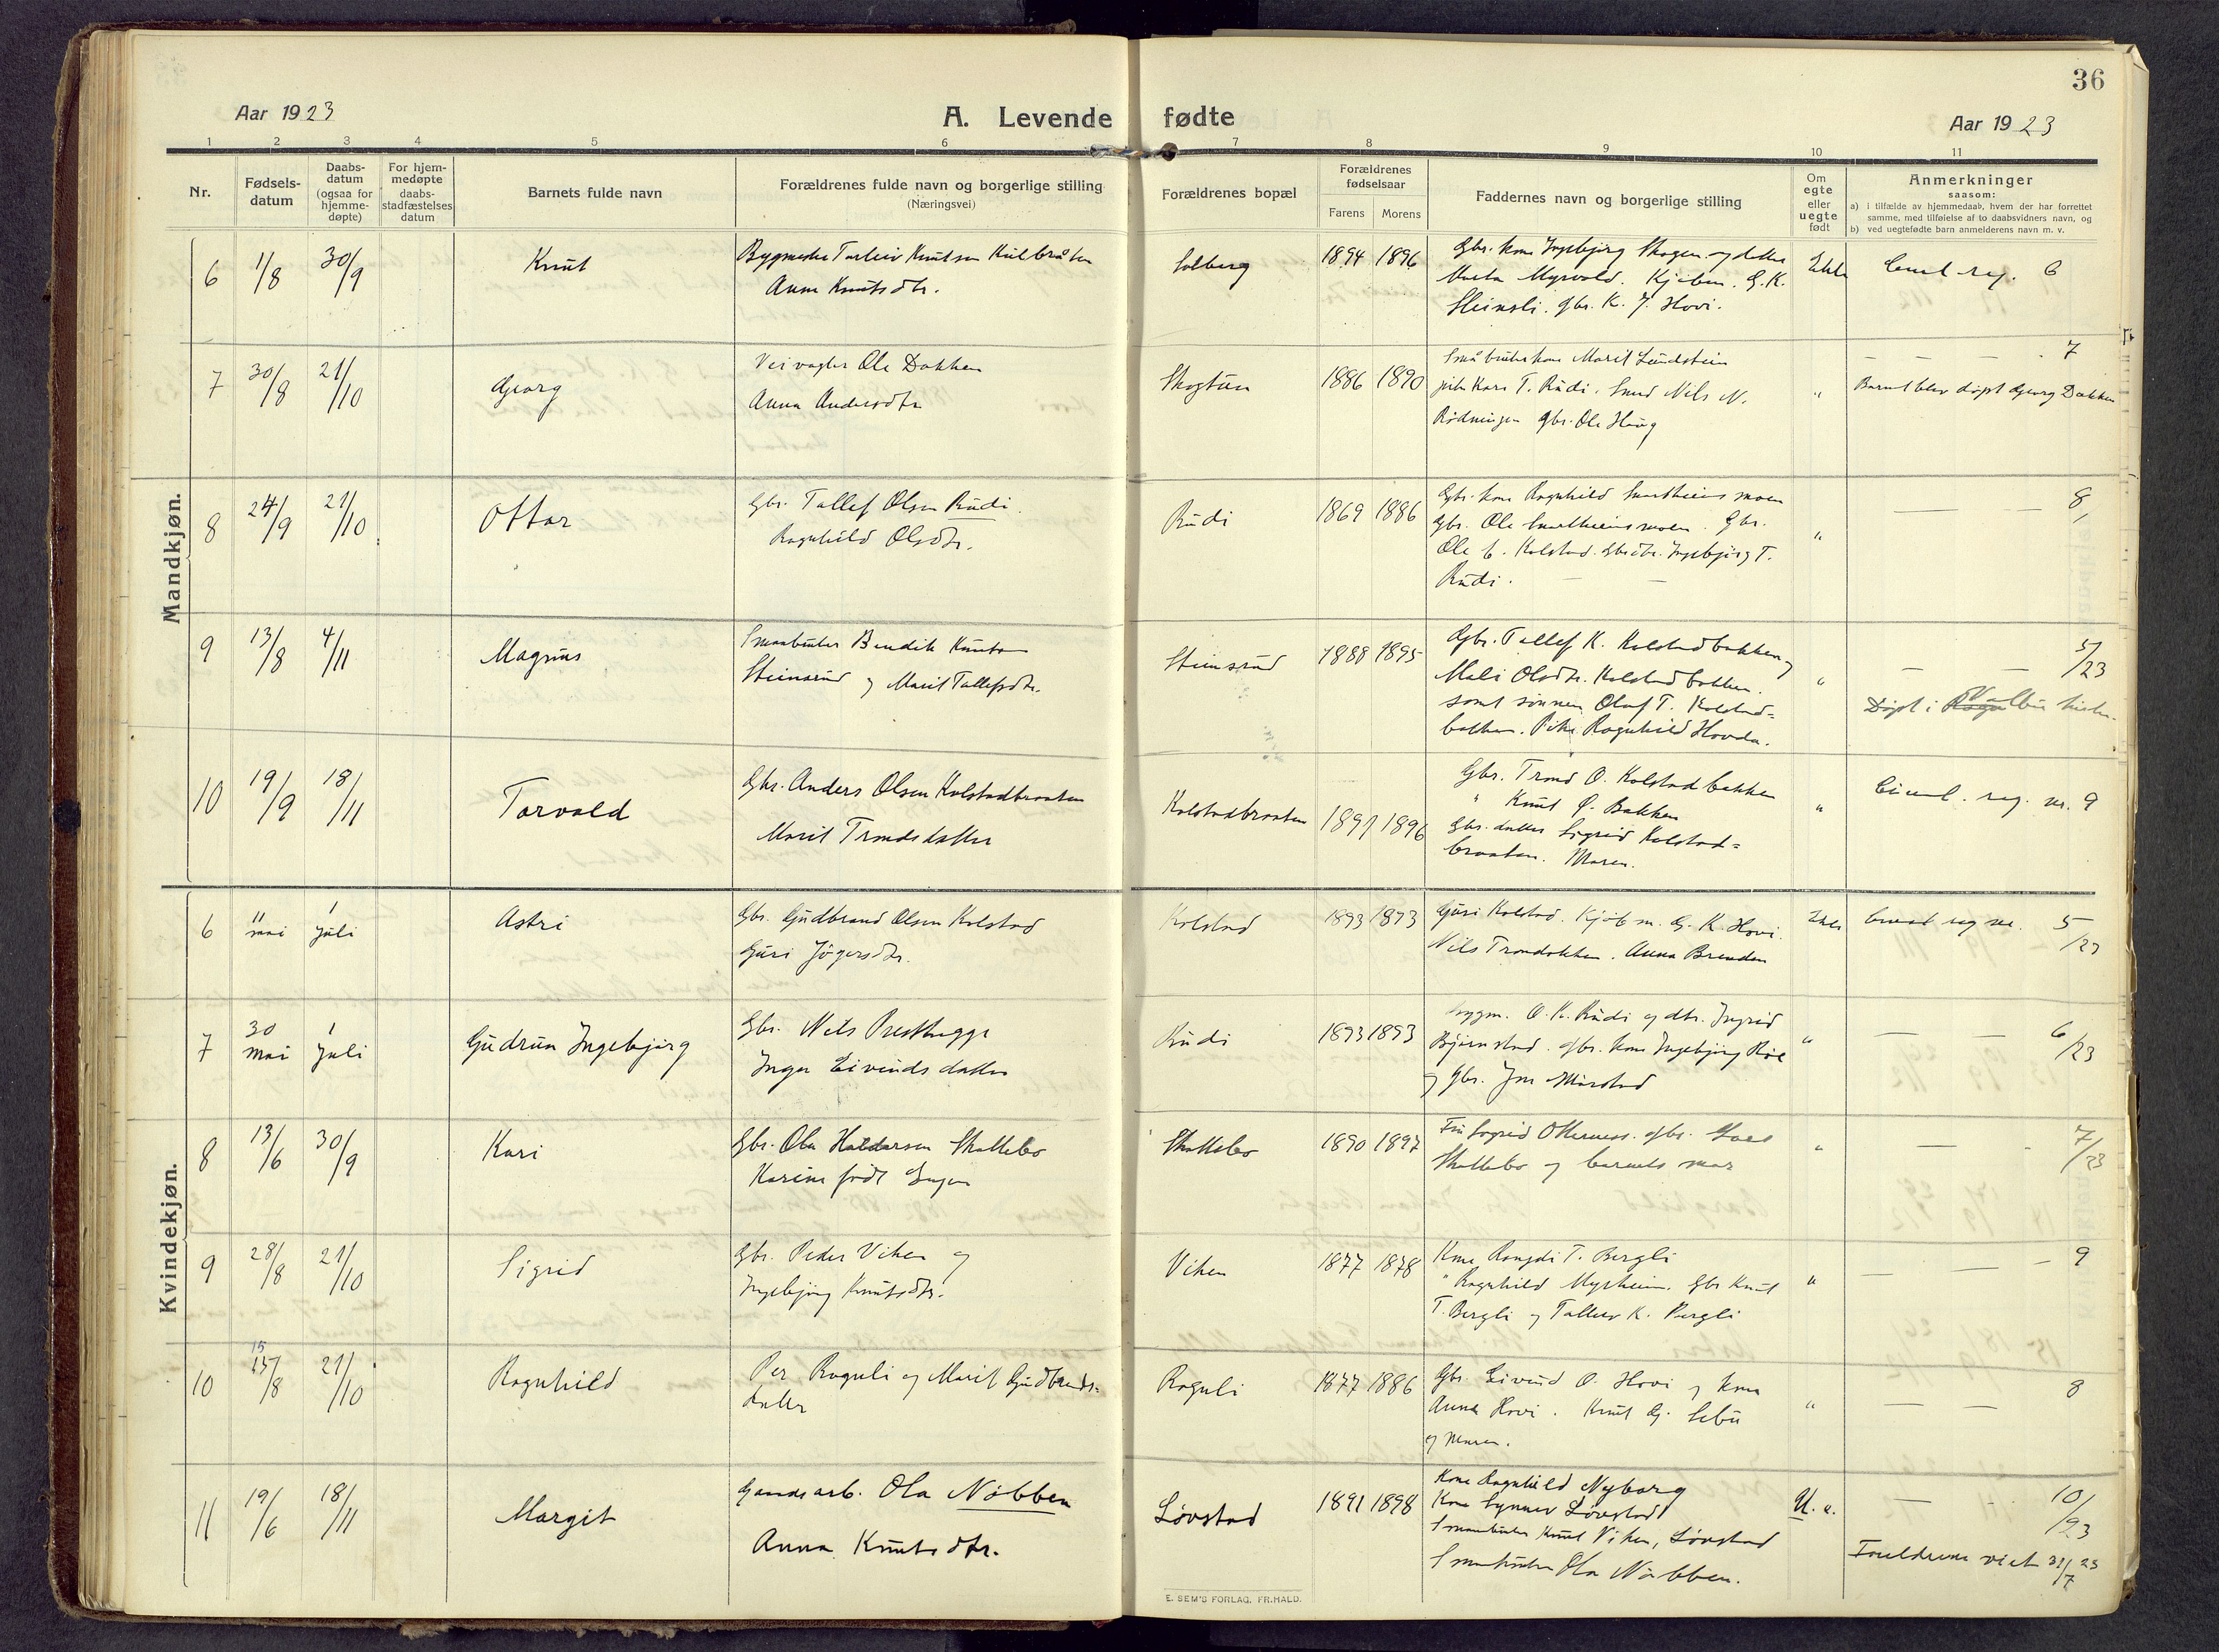 36
Aar 1923
A. Levende fødte
Aar 1923
1 2 3 4 5 6 7 8 9 10 11
Nr.
Fødsels-
datum
Daabs-
datum
(ogsaa for
hjemme-
døpte)
For hjem-
medøpte
daabs-
stadfæstelses
datum
Barnets fulde navn
Forældrenes fulde navn og borgerlige stilling
(Næringsvei)
Forældrenes bopæl
Forældrenes
fødselsaar
Farens Morens
Faddernes navn og borgerlige stilling
Om
egte
eller
uegte
født
Anmerkninger
saasom:
a) i tilfælde av hjemmedaab, hvem der har forrettet
samme, med tilføielse af to daabsvidners navn, og
b) ved uegtefødte barn anmelderens navn m. v.
Mandkjøn.
6 1/8 30/9 Knut
Tarleiv Knutsen Kulbråten
Anna Knutsdtr.
Solberg 1894 1896
Gbr. kone Ingebjørg Skogen og datter
Myrvold. Kjøbm. G. K.
Steinsli. gbr. K. J. Hovi.
Ekte
reg. 6
7 30/8 21/10 Georg
Veivogter Ole Dokken
Anna Andersdtr
Skogtun 1886 1890
Småbruker kone Marit Lundstein
pike Kari T. Rudi. Smed Nils N.
Rødningen gbr. Ole Haug
"
— — — 7
Barnet blev døpt Georg Dokken
8 24/9 21/10 Ottar
Gbr. Tollef Olsen Rudi.
Ragnhild Olsdtr.
Rudi 1869 1886
Gbr. kone Ragnhild
Gbr. Ole Gbr.
Ole Kolstad. Ingebjørg T.
Rudi. — —
"
— — — 8
9 13/8 4/11 Magnus
Smaabruker Bendik Knutsen
Steinsrud og Marit Tollefsdtr.
Steinsrud 1888 1895
Gbr. Tollef K. Kolstadbakken og
Mali Olsdtr. Kolstadbakken.
samt sønnen Olaf T. Kolstad-
bakken. Pike Ragnhild Hovda.
"
— — 5/23
Døpt i
10 19/9 18/11 Torvald
Gbr. Anders Olsen Kolstadbraaten
Marit Tronds datter
Kolstadbraaten 1897 1896
Gbr. Trond O. Kolstadbakken
" Knut O. Bakken
Gbr. datter Sigrid Kolstad-
braaten. Moren.
"
reg. nr. 9
Kvindekjøn.
6 11 mai 1 juli Astri
Gbr. Gudbrand Olsen Kolstad
Guri
Kolstad 1893 1893
Guri Kolstad. Kjøbm. G. K. Hovi.
Nils Trondokken. Anna Brenden
Ekte
reg nr. 5/23
7 30 mai 1 juli Gudrun Ingebjørg
Gbr. Nils Presthegge
Inga Eivinds datter
Rudi 1893 1893
O. K. Rudi og dtr. Ingrid
Bjørnstad. gbr. kone Ingebjørg
og gbr.
"
— — 6/23
8 13/6 30/9 Kari
Gbr. Ole Haldorsen Skattebo
Karine født
Skattebo 1890 1897
Sigrid gbr.
Skattebo og barnets mor
"
— - 7/23
9 28/8 21/10 Sigrid
Gbr. Peder Viken og
Ingebjørg Knutsdtr.
Viken 1877 1878
Kone Rangdi T. Bergli
" Ragnhild Myrheim. Gbr Knut
T. Bergli og K. Bergli
"
— — - 9
10 15/8 21/10 Ragnhild
Per Roguli og Marit Gudbrands-
datter
Roguli 1877 1886
Gbr. Eivind O. Hovi og kone
Anna Hovi. Knut G.
og moren.
"
— — 8
11 19/6 18/11 Margit
Gaardsarb. Ola Nøbben
Anna Knutsdtr.
Løvstad 1891 1898
Kone Ragnhild Nyborg
Kone Synnev Løvstad
Smaabruker Knut Viken, Løvstad
Smaabruker Ola Nøbben.
U. e.
— — 10/23
Foreldrene viet 31/7 23
E. SEM'S FORLAG, FR.HALD.